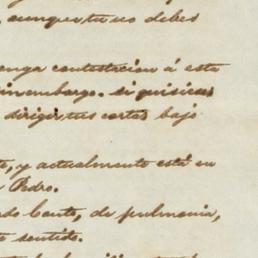 , aunque tu no debes
enga contestacion á esta
sinembargo. si quisieras
dirigir tus cartas bajo
, y actualmente está en
Pedro.
do Cante, de pulmonia,
sentido.